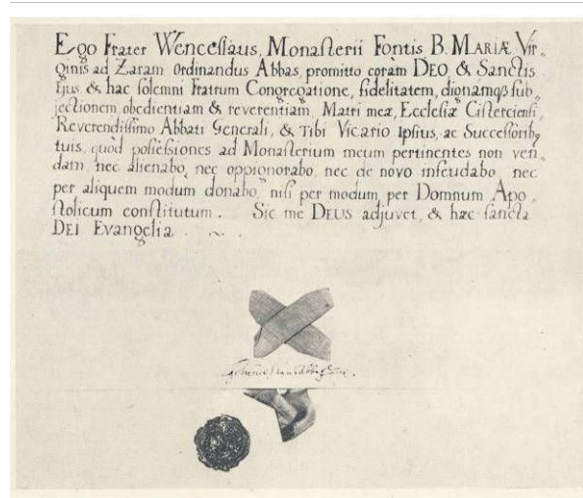 Ego Frater Wenceslaus, Monasterii Fontis B. MARIÆ Vir-
ginis ad Zaram Ordinandus Abbas, promitto coràm DEO, & Sanctis
Ejus, & hac solemni Fratrum Congregatione, fidelitatem, dignamq́; sub-
jectionem, obedientiam & reverentiam Matri meæ, Ecclesiæ Cisterciensi,
Reverendissimo Abbati Generali, & Tibi Vicario Ipsius, ac Successoribꝫ
tuis, quòd possessiones ad Monasterium meum pertinentes non ven-
dam, nec alienabo, nec oppignorabo, nec de novo infeudabo, nec
per aliquem modum donabo, nisi per modum, per Domnum Apo-
stolicum constitutum. Sic me DEUS adjuvet, & hæc sancta
DEI Evangelia.